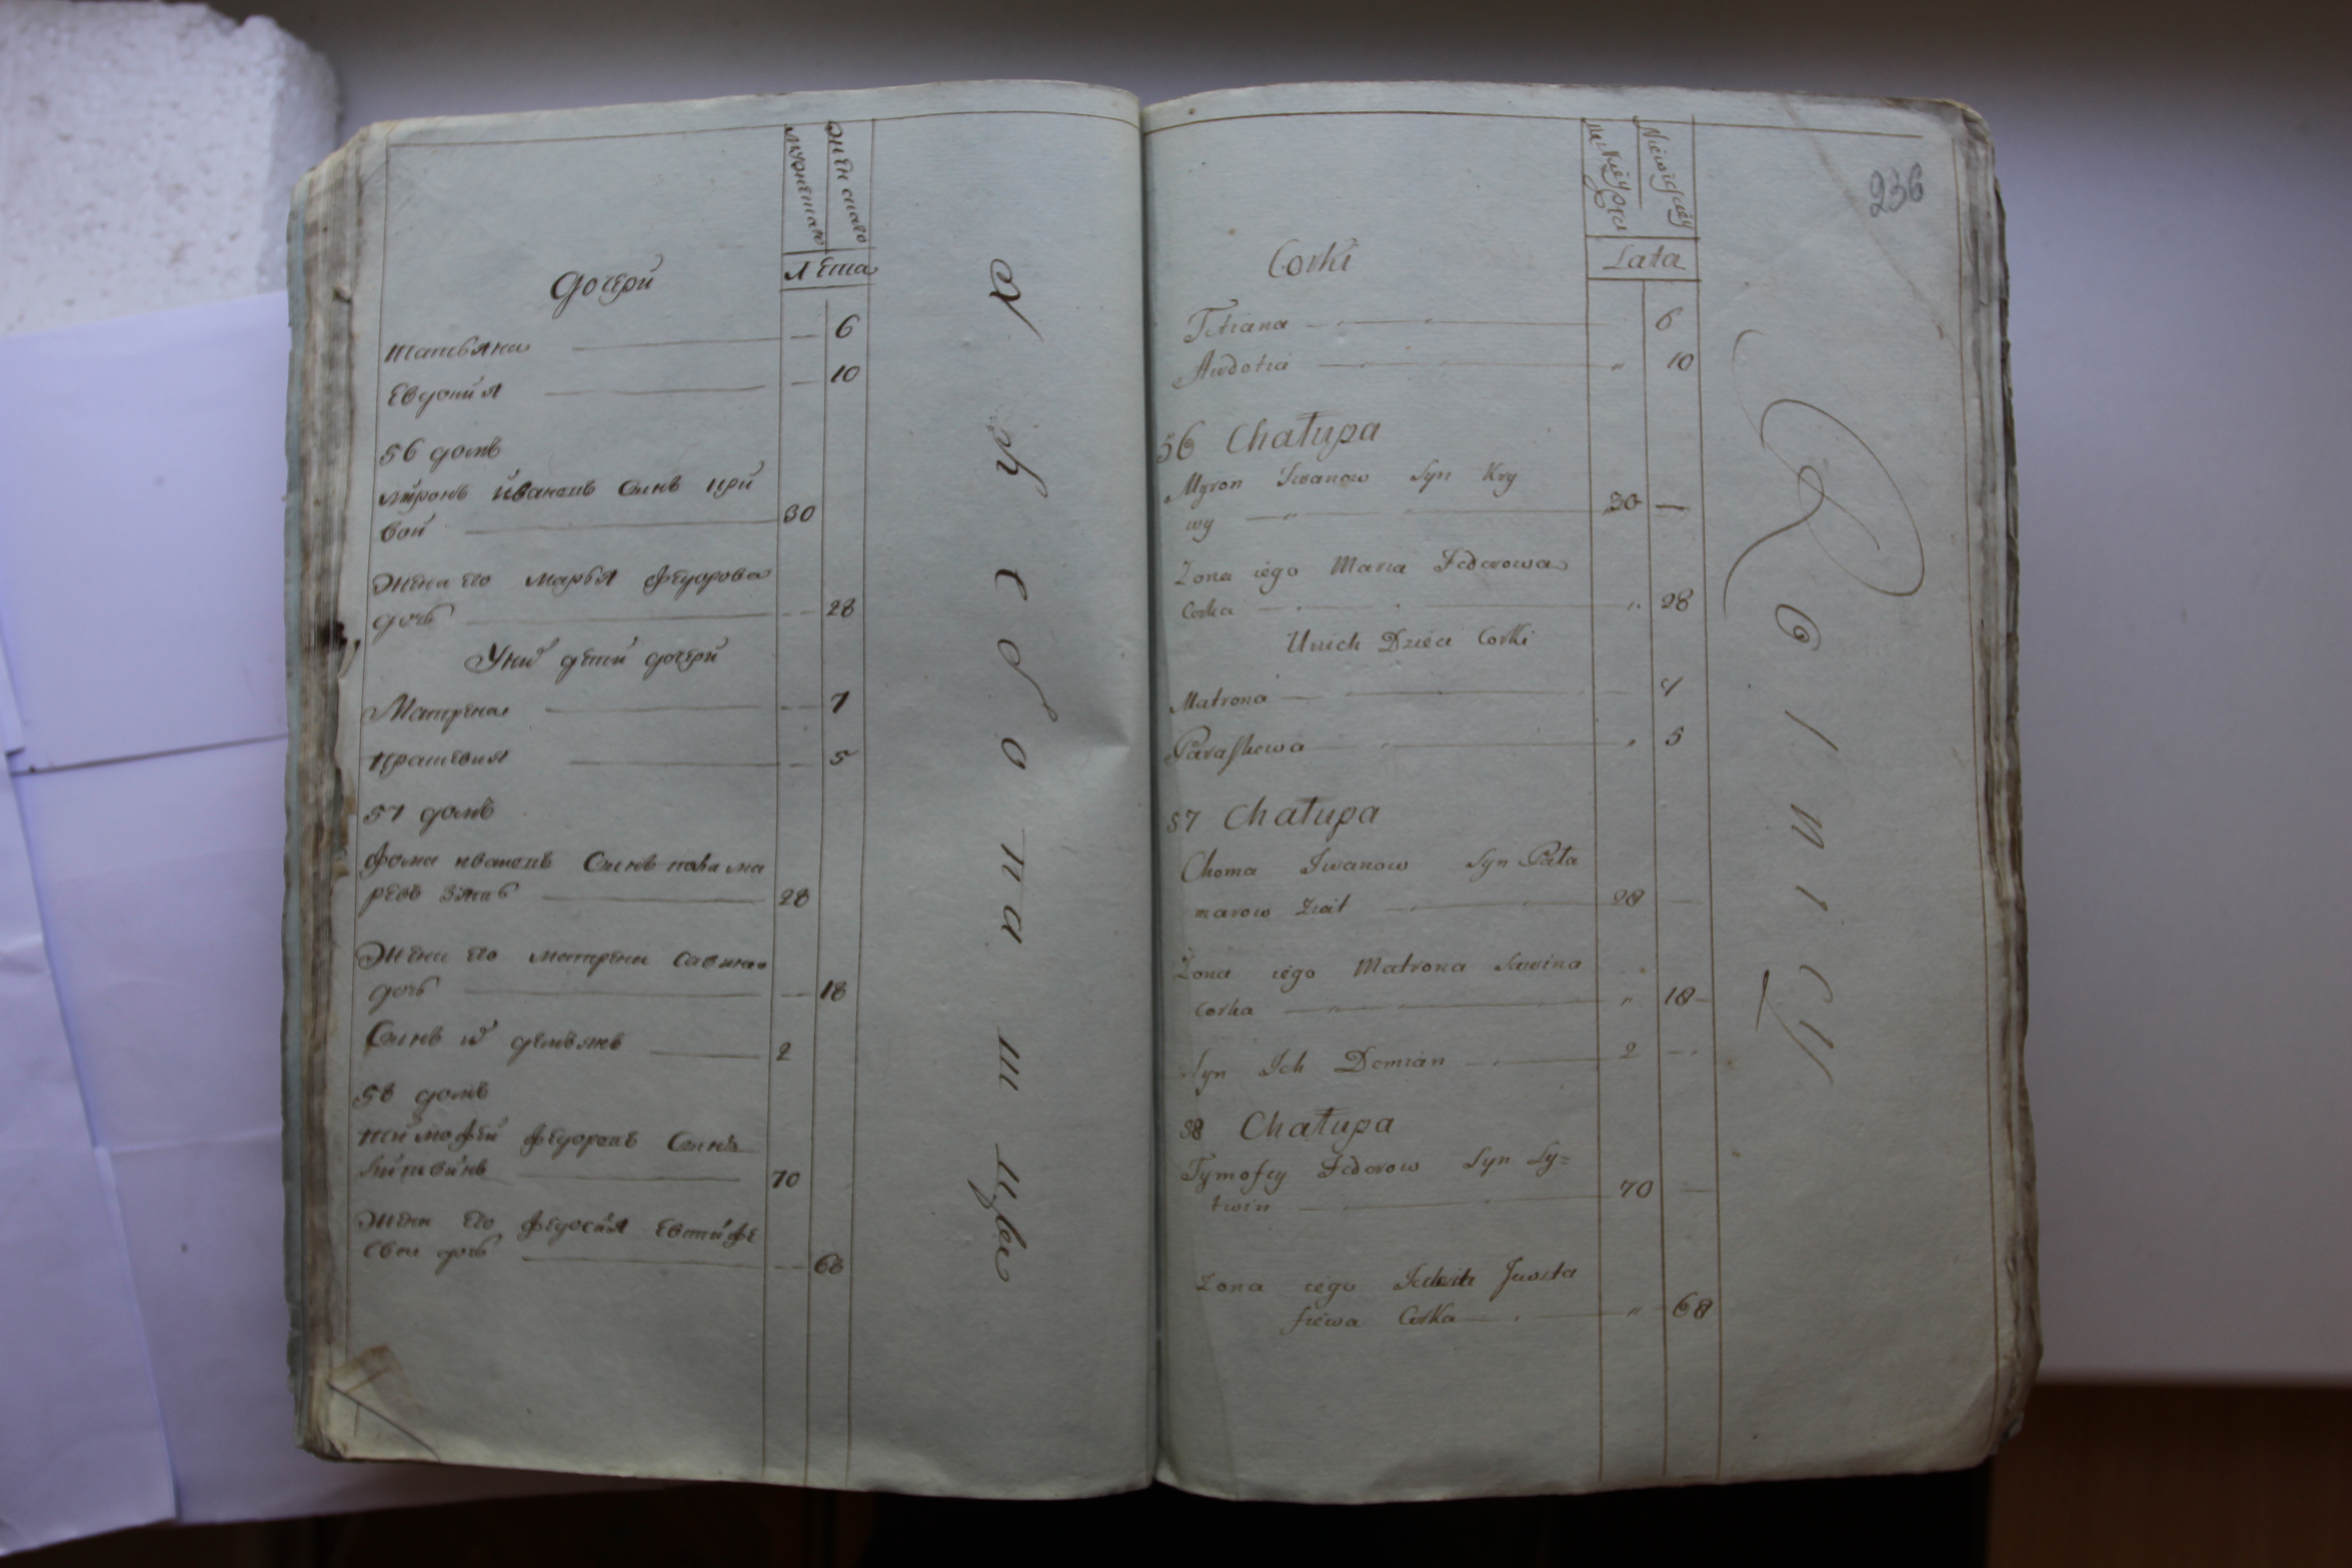 мужеска
женска
Лета
Дочери
татьяна 6
Евдокия 10
56 домъ
миронъ ивановъ Синъ кри
вой 30
Жена его марья федорова
дочь 28
У них дети дочери
Матрена 7
прасковия 5
57 домъ
фома ивановъ Синъ
28
Жена его матрена савина
дочь 18
Синъ их демьянъ 2
58 домъ
тимофей федоровъ Синъ
литвинъ 70
Жена его федосия Евтифе
ева дочь 68
236
Lata
Corki
Tetiana 6
Awdotia 10
56 Chałupa
Myron Jwanow Syn Kry
wy 30
Zona iego Maria Fedorowa
Corka 28
Unich Dzieci Corki
Matrona 7
Paraskewa 5
57 Chałupa
Choma Jwanow Syn Pała
marow Ziat 28
Zona iego Matrona Sawina
Corka 18
Syn Ich Demian 2
58 Chałupa
Tymofey Fedorow Syn Ly=
twin 70
Zona iego
fiewa Corka 68
Rolnicy